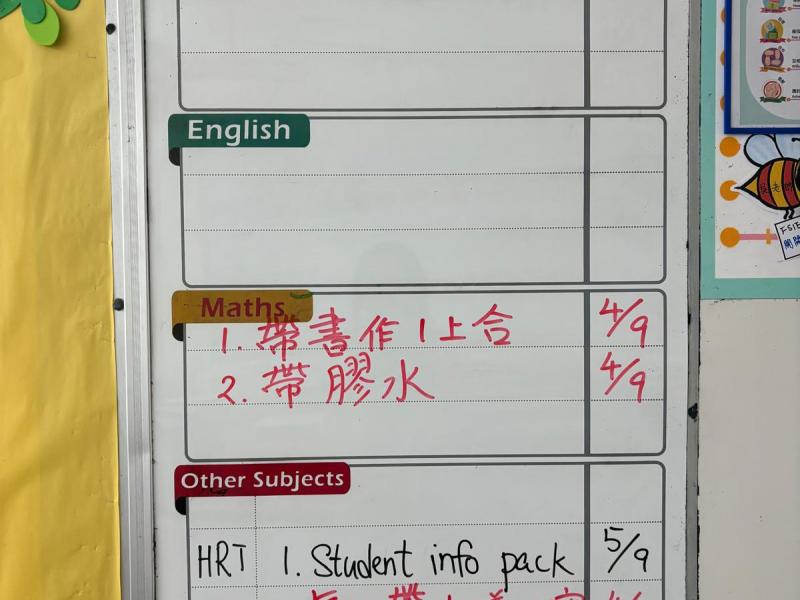 English
Maths
1. 帶書作1上合 4/9
2. 帶膠水 4/9
Other Subjects
HRT 1. Student info pack 5/9